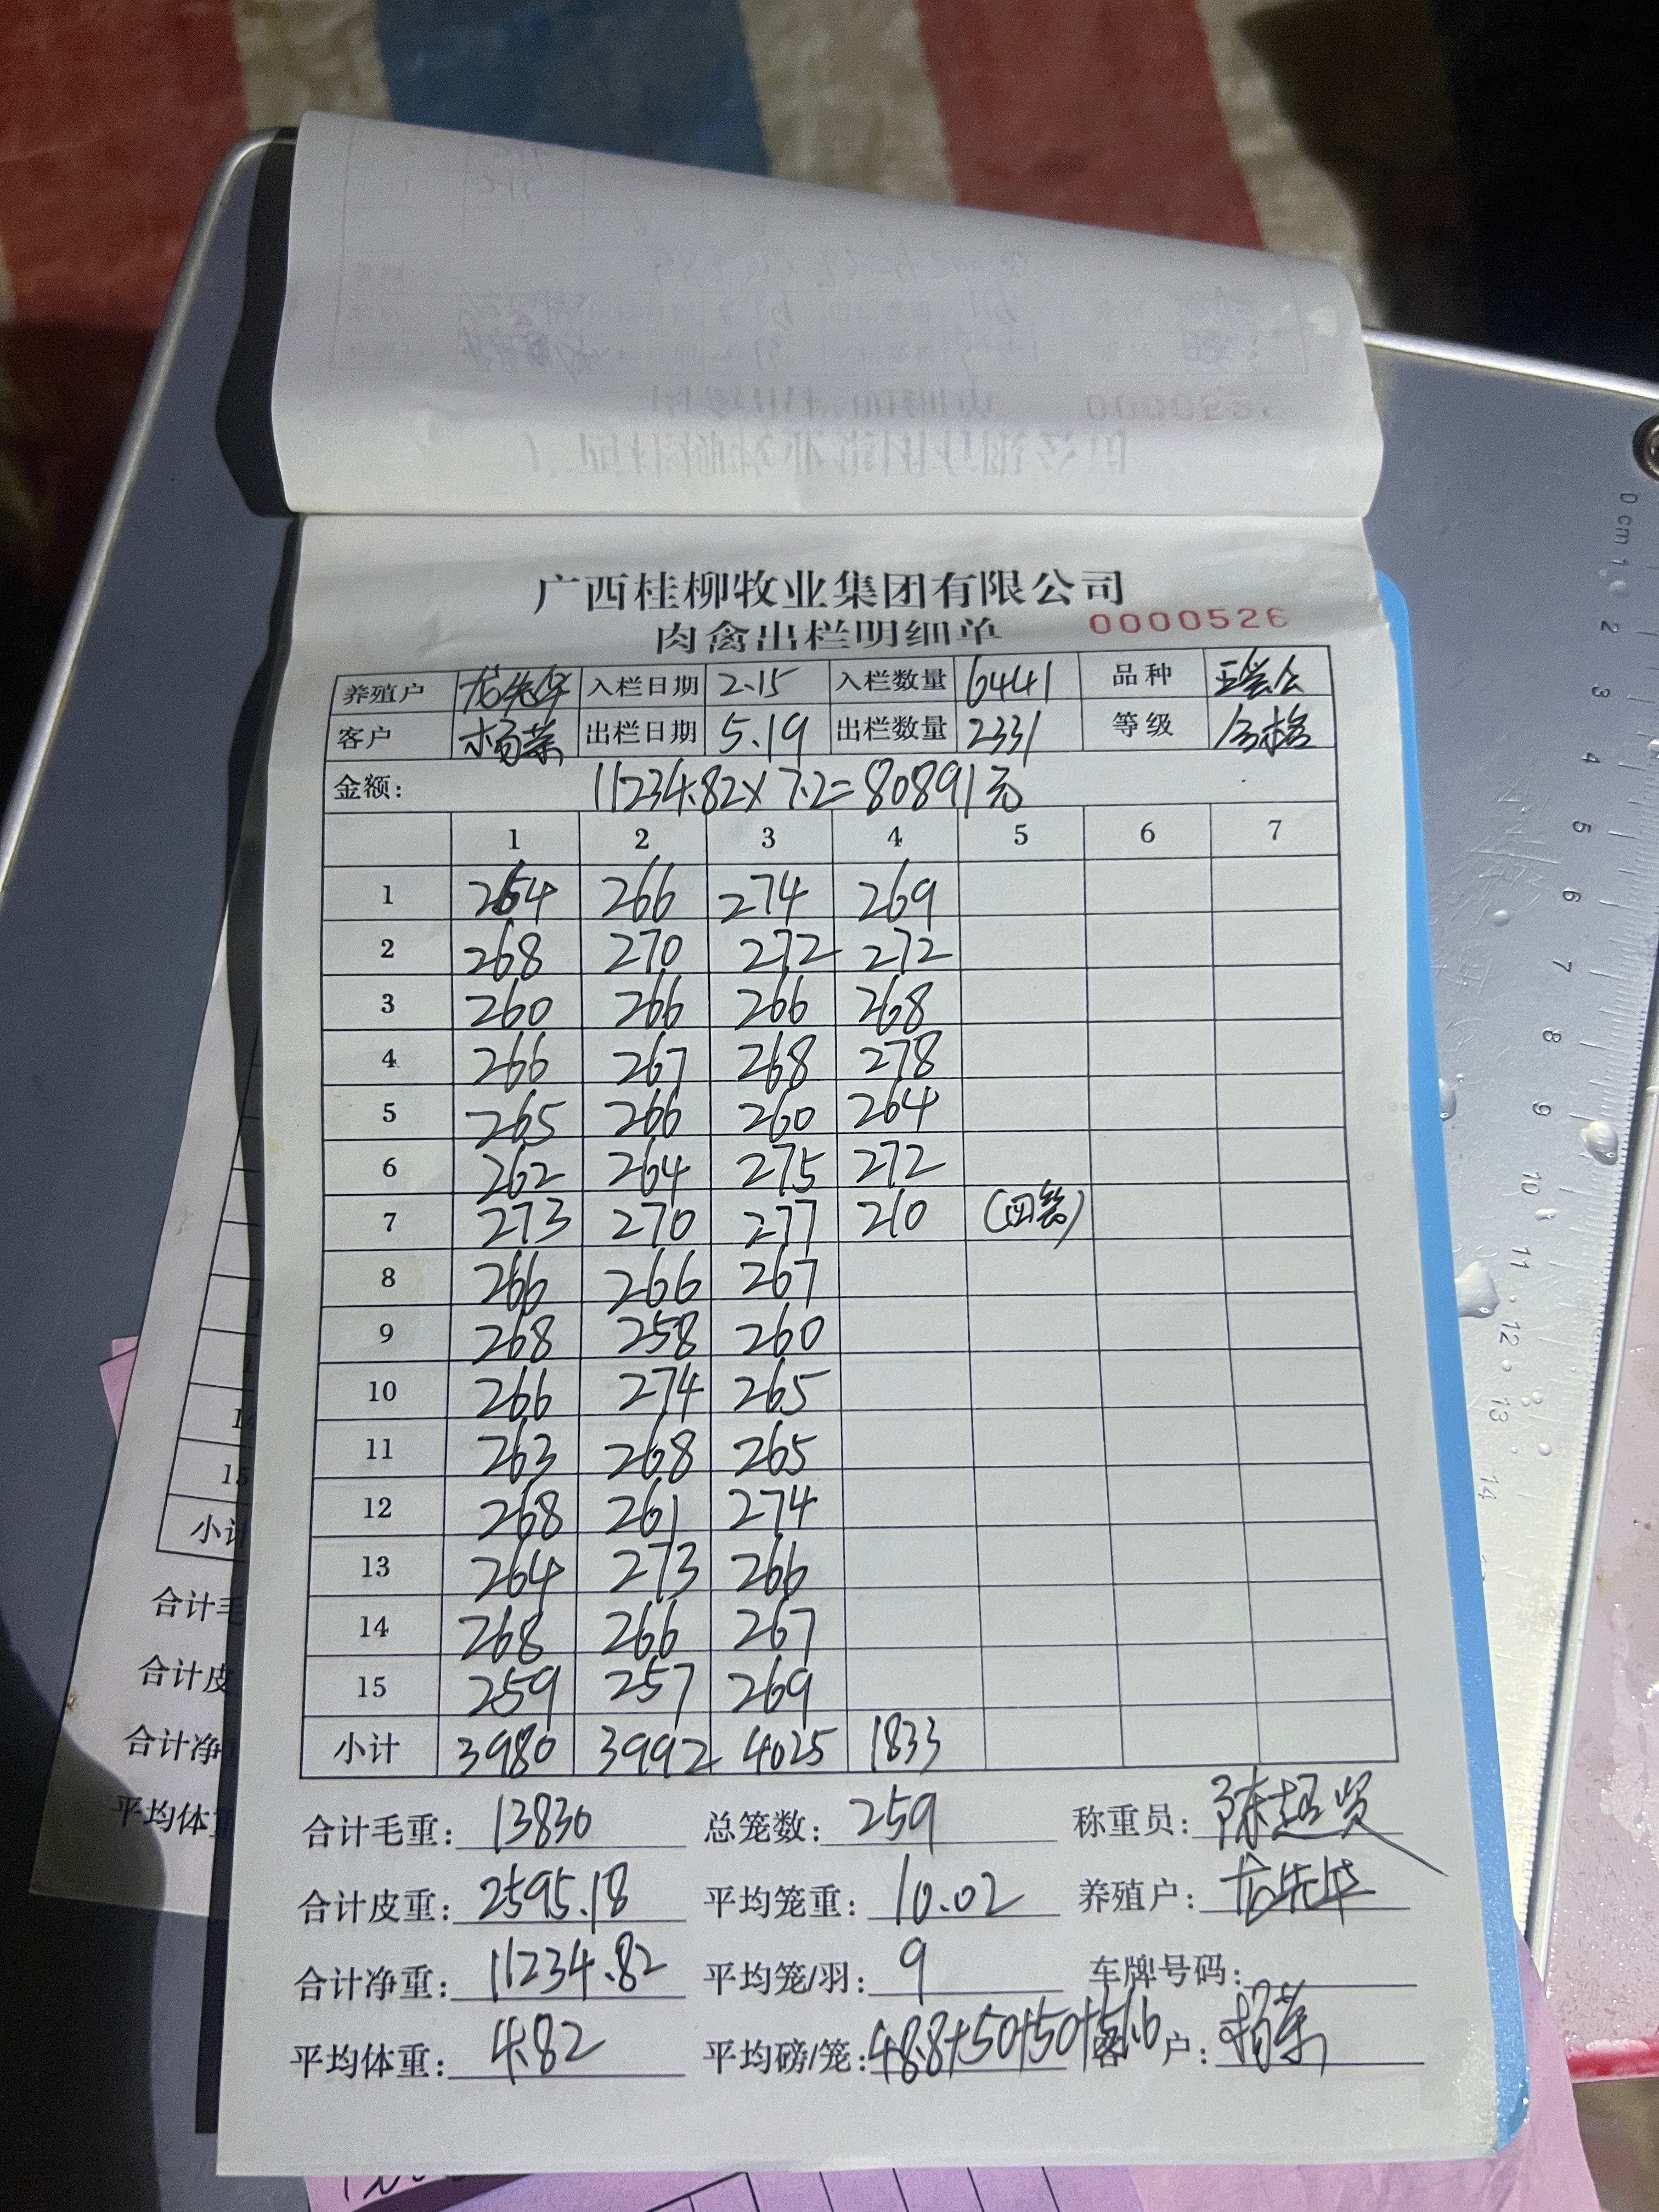 广西桂柳牧业集团有限公司
肉禽出栏明细单 0000526
养殖户 龙先华 入栏日期 2.15 入栏数量 6441 品种
客户 杨荣 出栏日期 5.19 出栏数量 2331 等级 合格
金额: 11234.82×7.2=80891元
1 2 3 4 5 6 7
1 264 266 274 269
2 268 270 272 272
3 260 266 266 268
4 266 267 268 278
5 265 266 260 264
6 262 264 275 272
7 273 270 277 210 (四笼)
8 266 266 267
9 268 258 260
10 266 274 265
11 263 268 265
12 268 261 274
13 264 273 266
14 268 266 267
15 259 257 269
小计 3980 3992 4025 1833
合计毛重: 13830 总笼数: 259 称重员: 陈超贤
合计皮重: 2595.18 平均笼重: 10.02 养殖户: 龙先华
合计净重: 11234.82 平均笼/羽: 9 车牌号码:
平均体重: 4.82 平均磅/笼: 48.8+50+50+51.6 客户: 杨荣
15
小计
合计毛
合计皮
合计净
平均体重
0 cm 1 2 3 4 5 6 7 8 9 10 11 12 13 14